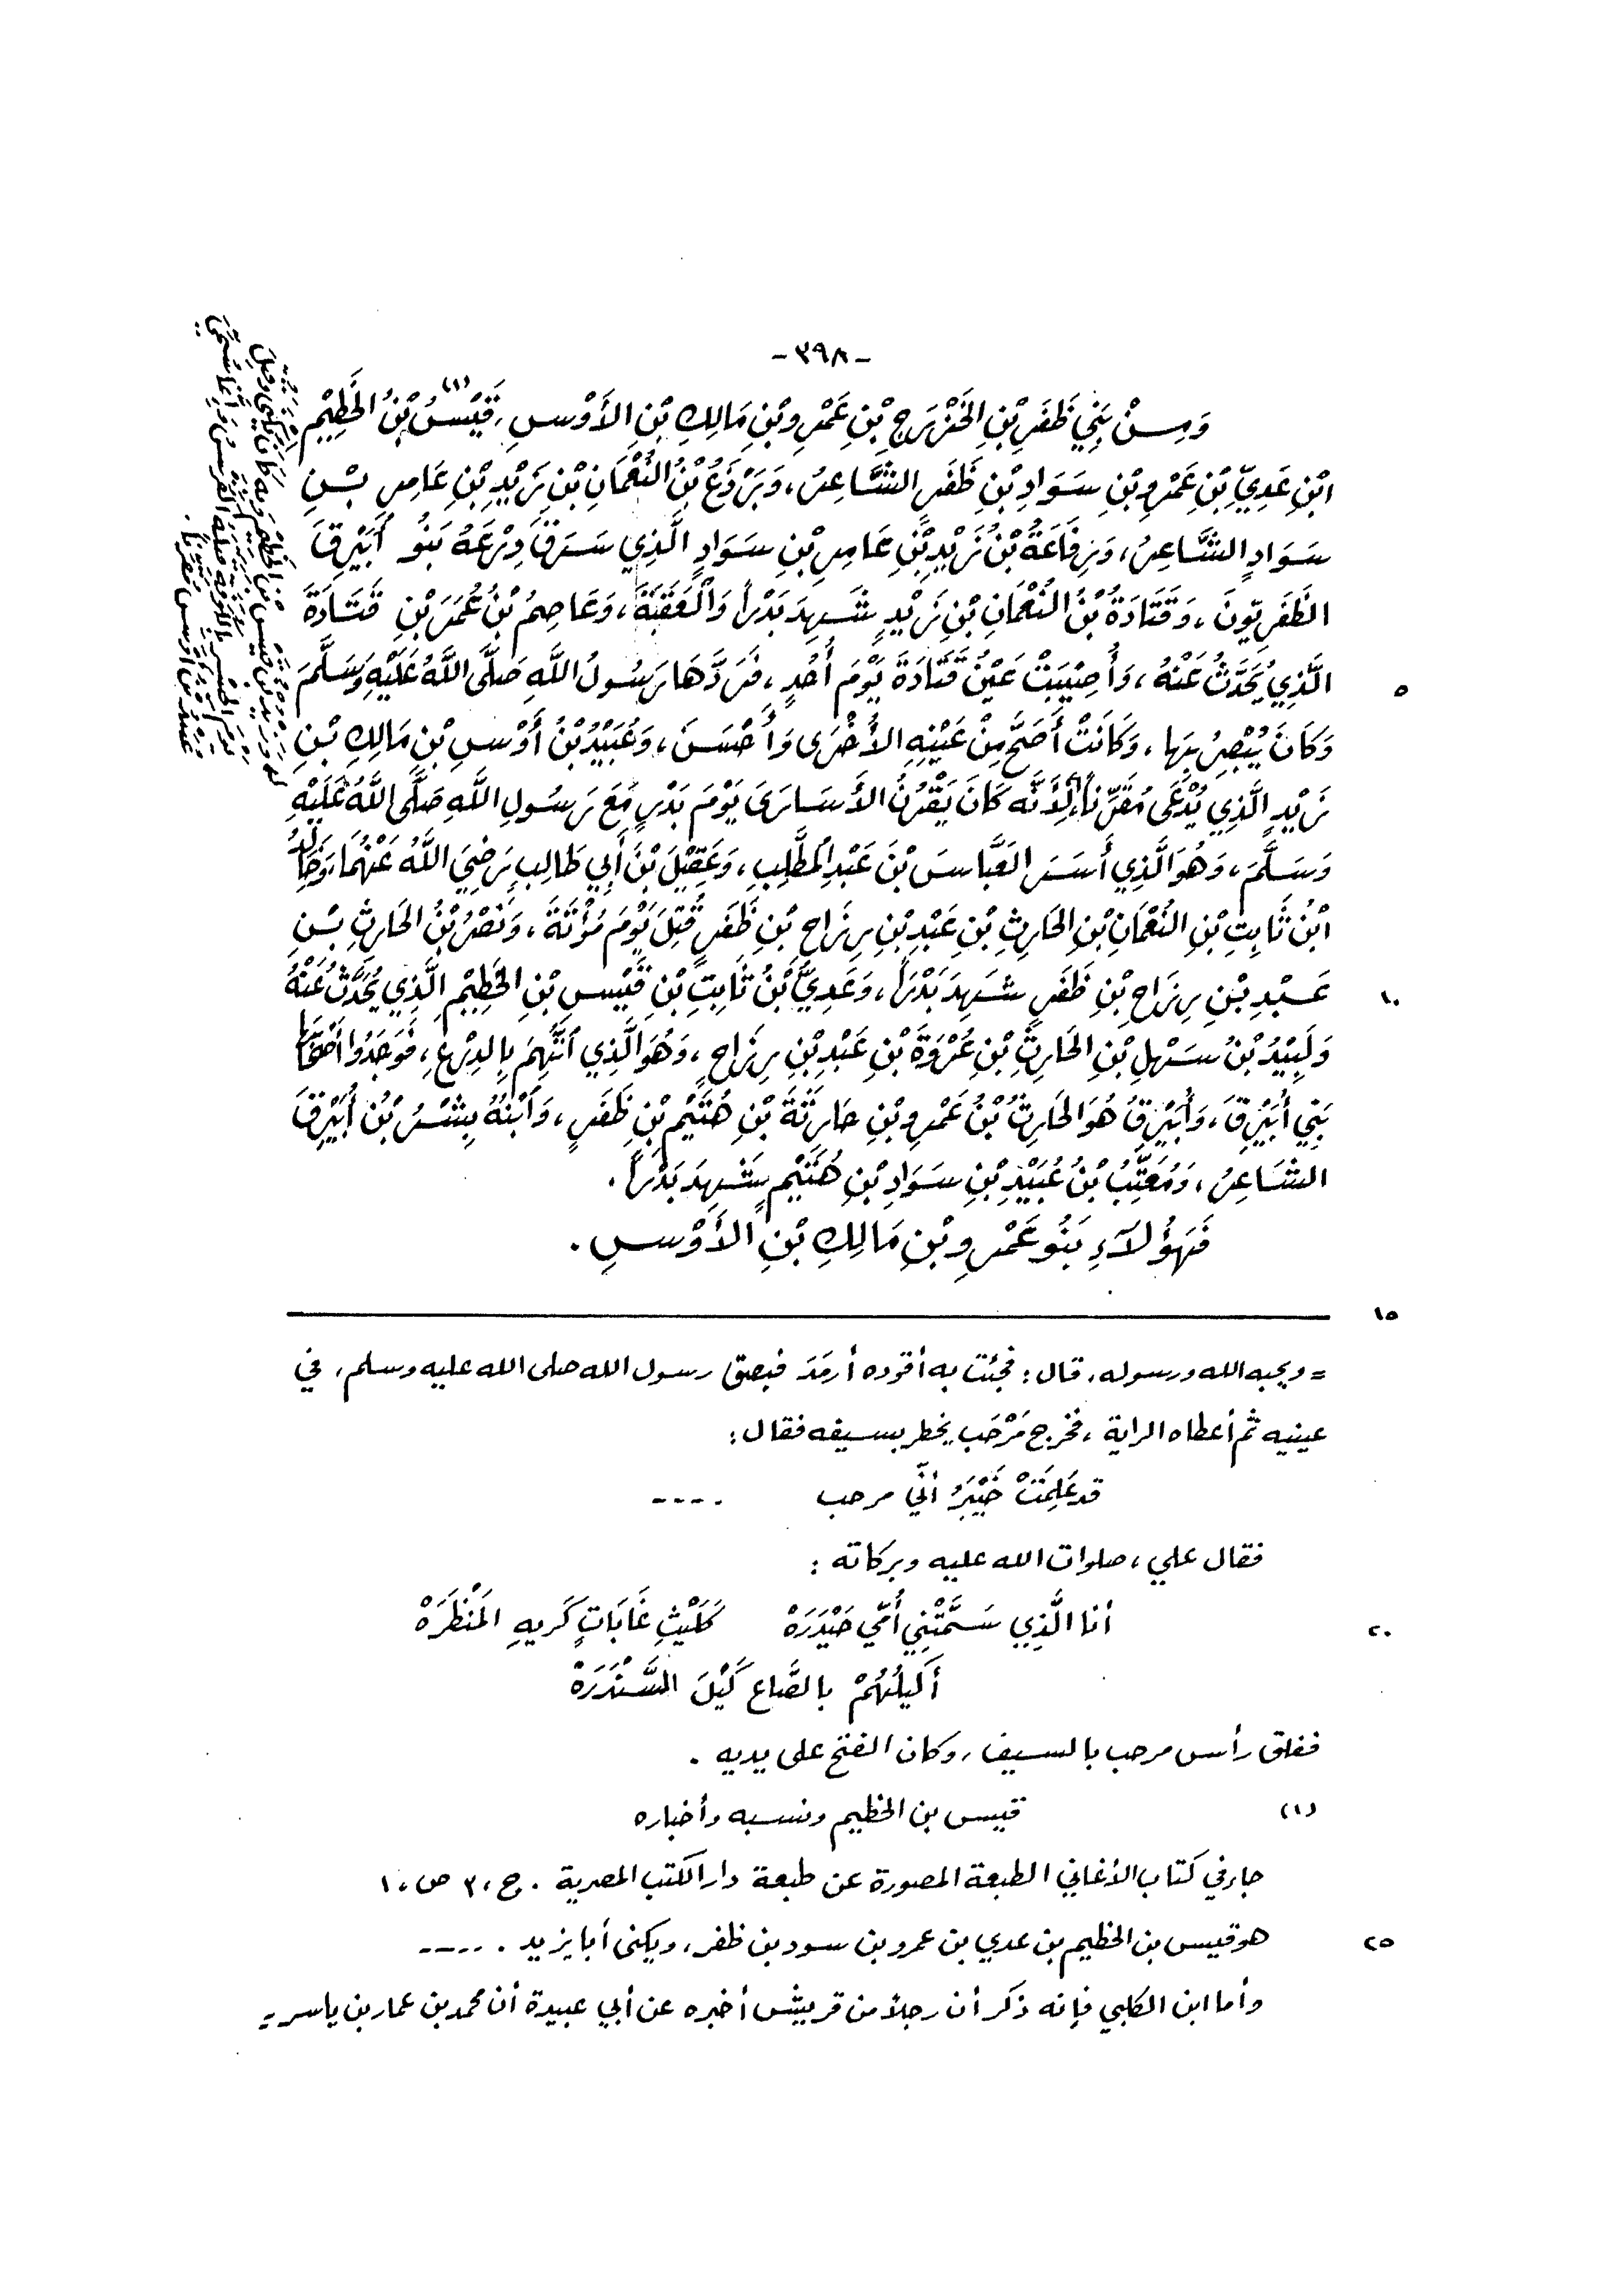 -٣٩٨-
وَمِنْ بَنِي ظَفَرِ بْنِ الخَزْرَجِ بْنِ عَمْرِو بْنِ مَالِكِ بْنِ الأَوْسِ، قَيْسُ بْنُ الخَطِيْمِ (١)
ابْنِ عَدِيِّ بْنِ عَمْرِو بْنِ سَوَادِ بْنِ ظَفَرٍ الشَّاعِرُ، وَبَرْذَعُ بْنُ النُّعْمَانِ بْنِ زَيْدِ بْنِ عَامِرِ بْنِ
سَوَادٍ الشَّاعِرُ، وَرِفَاعَةُ بْنُ زَيْدِ بْنِ عَامِرِ بْنِ سَوَادٍ الَّذِي سَرَقَ دِرْعَهُ بَنُو أُبَيْرِقَ
الظَّفَرِيّونَ، وَقَتَادَةُ بْنُ النُّعْمَانِ بْنِ زَيْدٍ شَهِدَ بَدْرَاً وَالْعَقَبَةَ، وَعَاصِمُ بْنُ عُمَرَ بْنِ قَتَادَةَ
الَّذِي يُحَدَّثُ عَنْهُ، وَأُصِيْبَتْ عَيْنُ قَتَادَةَ يَوْمَ أُحُدٍ، فَرَدَّهَا رَسُولُ اللَّهِ صَلَّى اللَّهُ عَلَيْهِ وَسَلَّمَ
٥
وَكَانَ يُبْصِرُ بِهَا، وَكَانَتْ أَصَحَّ مِنْ عَيْنِهِ الأُخْرَى وَأَحْسَنَ، وَعُبَيْدُ بْنُ أَوْسِ بْنِ مَالِكِ بْنِ
زَيْدٍ الَّذِي يُدْعَى مُقَرِّنَاً، لِأَنَّه كَانَ يَقْرُنُ الأَسَارَى يَوْمَ بَدْرٍ مَعَ رَسُولِ اللَّهِ صَلَّى اللَّهُ عَلَيْهِ
وَسَلَّمَ، وَهُوَ الَّذِي أَسَرَ العَبَّاسَ بْنَ عَبْدِ المُطَّلِبِ، وَعَقِيْلَ بْنَ أَبِي طَالِبٍ رَضِيَ اللَّهُ عَنْهُمَا، وَخَالِدُ
ابْنُ ثَابِتِ بْنِ النُّعْمَانِ بْنِ الحَارِثِ بْنِ عَبْدِ بْنِ رِزَاحِ بْنِ ظَفَرٍ قُتِلَ يَوْمَ مُؤْتَةَ، وَنَصْرُ بْنُ الحَارِثِ بْنِ
عَبْدِ بْنِ رِزَاحِ بْنِ ظَفَرٍ شَهِدَ بَدْرَاً، وَعَدِيُّ بْنُ ثَابِتِ بْنِ قَيْسِ بْنِ الخَطِيْمِ الَّذِي يُحَدَّثُ عَنْهُ
١٠
وَلَبِيْدُ بْنُ سَهْلِ بْنِ الحَارِثِ بْنِ عُرْوَةَ بْنِ عَبْدِ بْنِ رِزَاحٍ، وَهُوَ الَّذِي اتُّهِمَ بِالدِّرْعِ، فَوَجَدُوا أَصْحَابَهَا
بَنِي أُبَيْرِقَ، وَأُبَيْرِقُ هُوَ الحَارِثُ بْنُ عَمْرِو بْنِ حَارِثَةَ بْنِ هُتَيْمِ بْنِ ظَفَرٍ، وَابْنُهُ بِشْرُ بْنُ أُبَيْرِقَ
الشَّاعِرُ، وَمُعَتِّبُ بْنُ عُبَيْدِ بْنِ سَوَادِ بْنِ هُتَيْمٍ شَهِدَ بَدْرَاً.
فَهَؤُلاَءِ بَنُو عَمْرِو بْنِ مَالِكِ بْنِ الأَوْسِ.
١٥
= ويحبه الله ورسوله، قال: فجئت به أقوده أرمَدَ فبصق رسول الله صلى الله عليه وسلم، في
عينيه ثم أعطاه الراية، فخرج مَرْحَب يخطر بسيفه فقال:
قد عَلِمَتْ خَيْبَرُ أنّي مرحب ....
فقال علي، صلوات الله عليه وبركاته:
أنا الَّذِي سَمَّتْنِي أُمّي حَيْدَرَهْ كَلَيْثِ غَابَاتٍ كَريهِ المَنْظَرَهْ
٢٠
أَكيلُهُمْ بالصَّاع كَيْلَ السَّنْدَرَهْ
ففلق رأس مرحب بالسيف، وكان الفتح على يديه.
(١) قيس بن الخطيم ونسبه وأخباره
جاء في كتاب الأغاني الطبعة المصورة عن طبعة دار الكتب المصرية. ج، ٣ ص، ١
هو قيس بن الخطيم بن عدي بن عمرو بن سود بن ظفر، ويكنى أبا يزيد. ....
٢٥
وأما ابن الكلبي فإنه ذكر أن رجلاً من قريش أخبره عن أبي عبيدة أن محمد بن عمار بن ياسر =